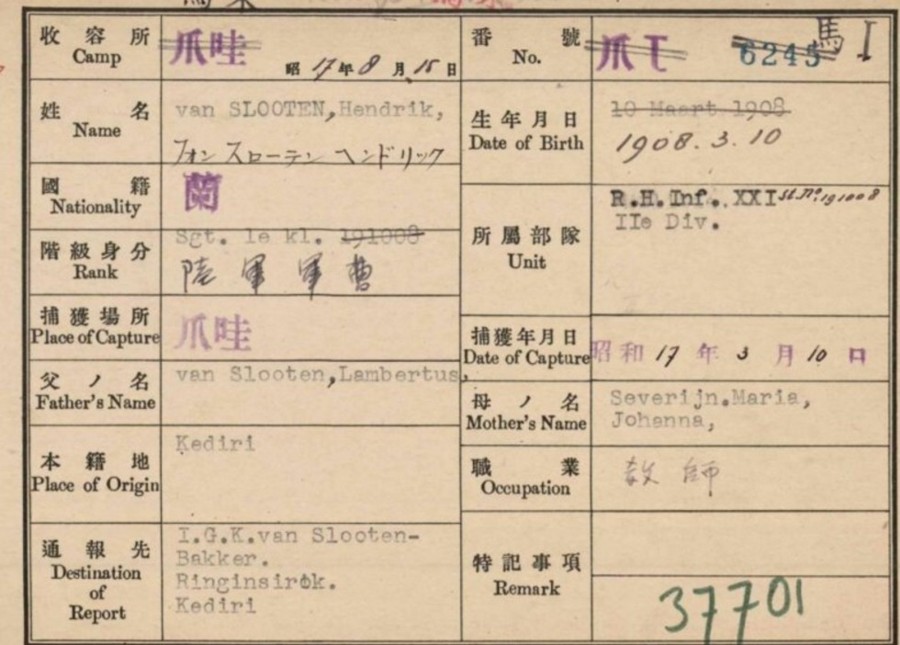 收容所 Camp 爪哇 昭17年8月15日
番號 No. 爪 6245 馬 I
姓名 Name van SLOOTEN, Hendrik,
フォン スローテン ヘンドリック
生年月日 Date of Birth 10 Maart 1908
1908.3.10
國籍 Nationality 蘭
所屬部隊 Unit R.H. Inf. XXI st.no. 191008
IIe Div.
階級身分 Rank Sgt. 1e kl. 191008
陸軍軍曹
捕獲場所 Place of Capture 爪哇
捕獲年月日 Date of Capture 昭和17年3月10日
父ノ名 Father's Name van Slooten,Lambertus,
母ノ名 Mother's Name Severijn.Maria,
Johanna,
本籍地 Place of Origin Kediri
職業 Occupation 教師
通報先 Destination of Report I.G.K.van Slooten-
Bakker.
Ringinsirok.
Kediri
特記事項 Remark
37701